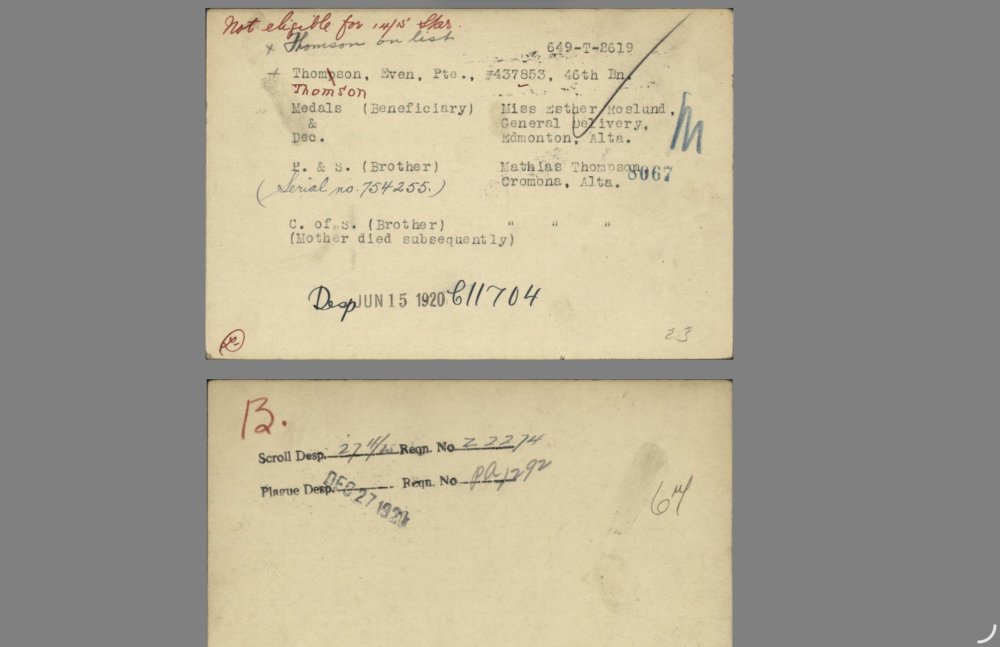 Not eligible for 14/15 Star.
x Thomson on list
649-T-2619
+ Thompson, Even, Pte., #437853, 46th Bn.
Thomson
Medals (Beneficiary) Miss Esther Roslund,
& General Delivery,
Dec. Edmonton, Alta.
M
P. & S. (Brother) Mathias Thompson
8067
(Serial no. 754255.) Cromona, Alta.
C. of S. (Brother) " " "
(Mother died subsequently)
Desp JUN 15 1920 C11704
23
B.
Scroll Desp. 27 Reqn. No Z 2274
Plaque Desp. DEC 27 192 Reqn. No PA1292